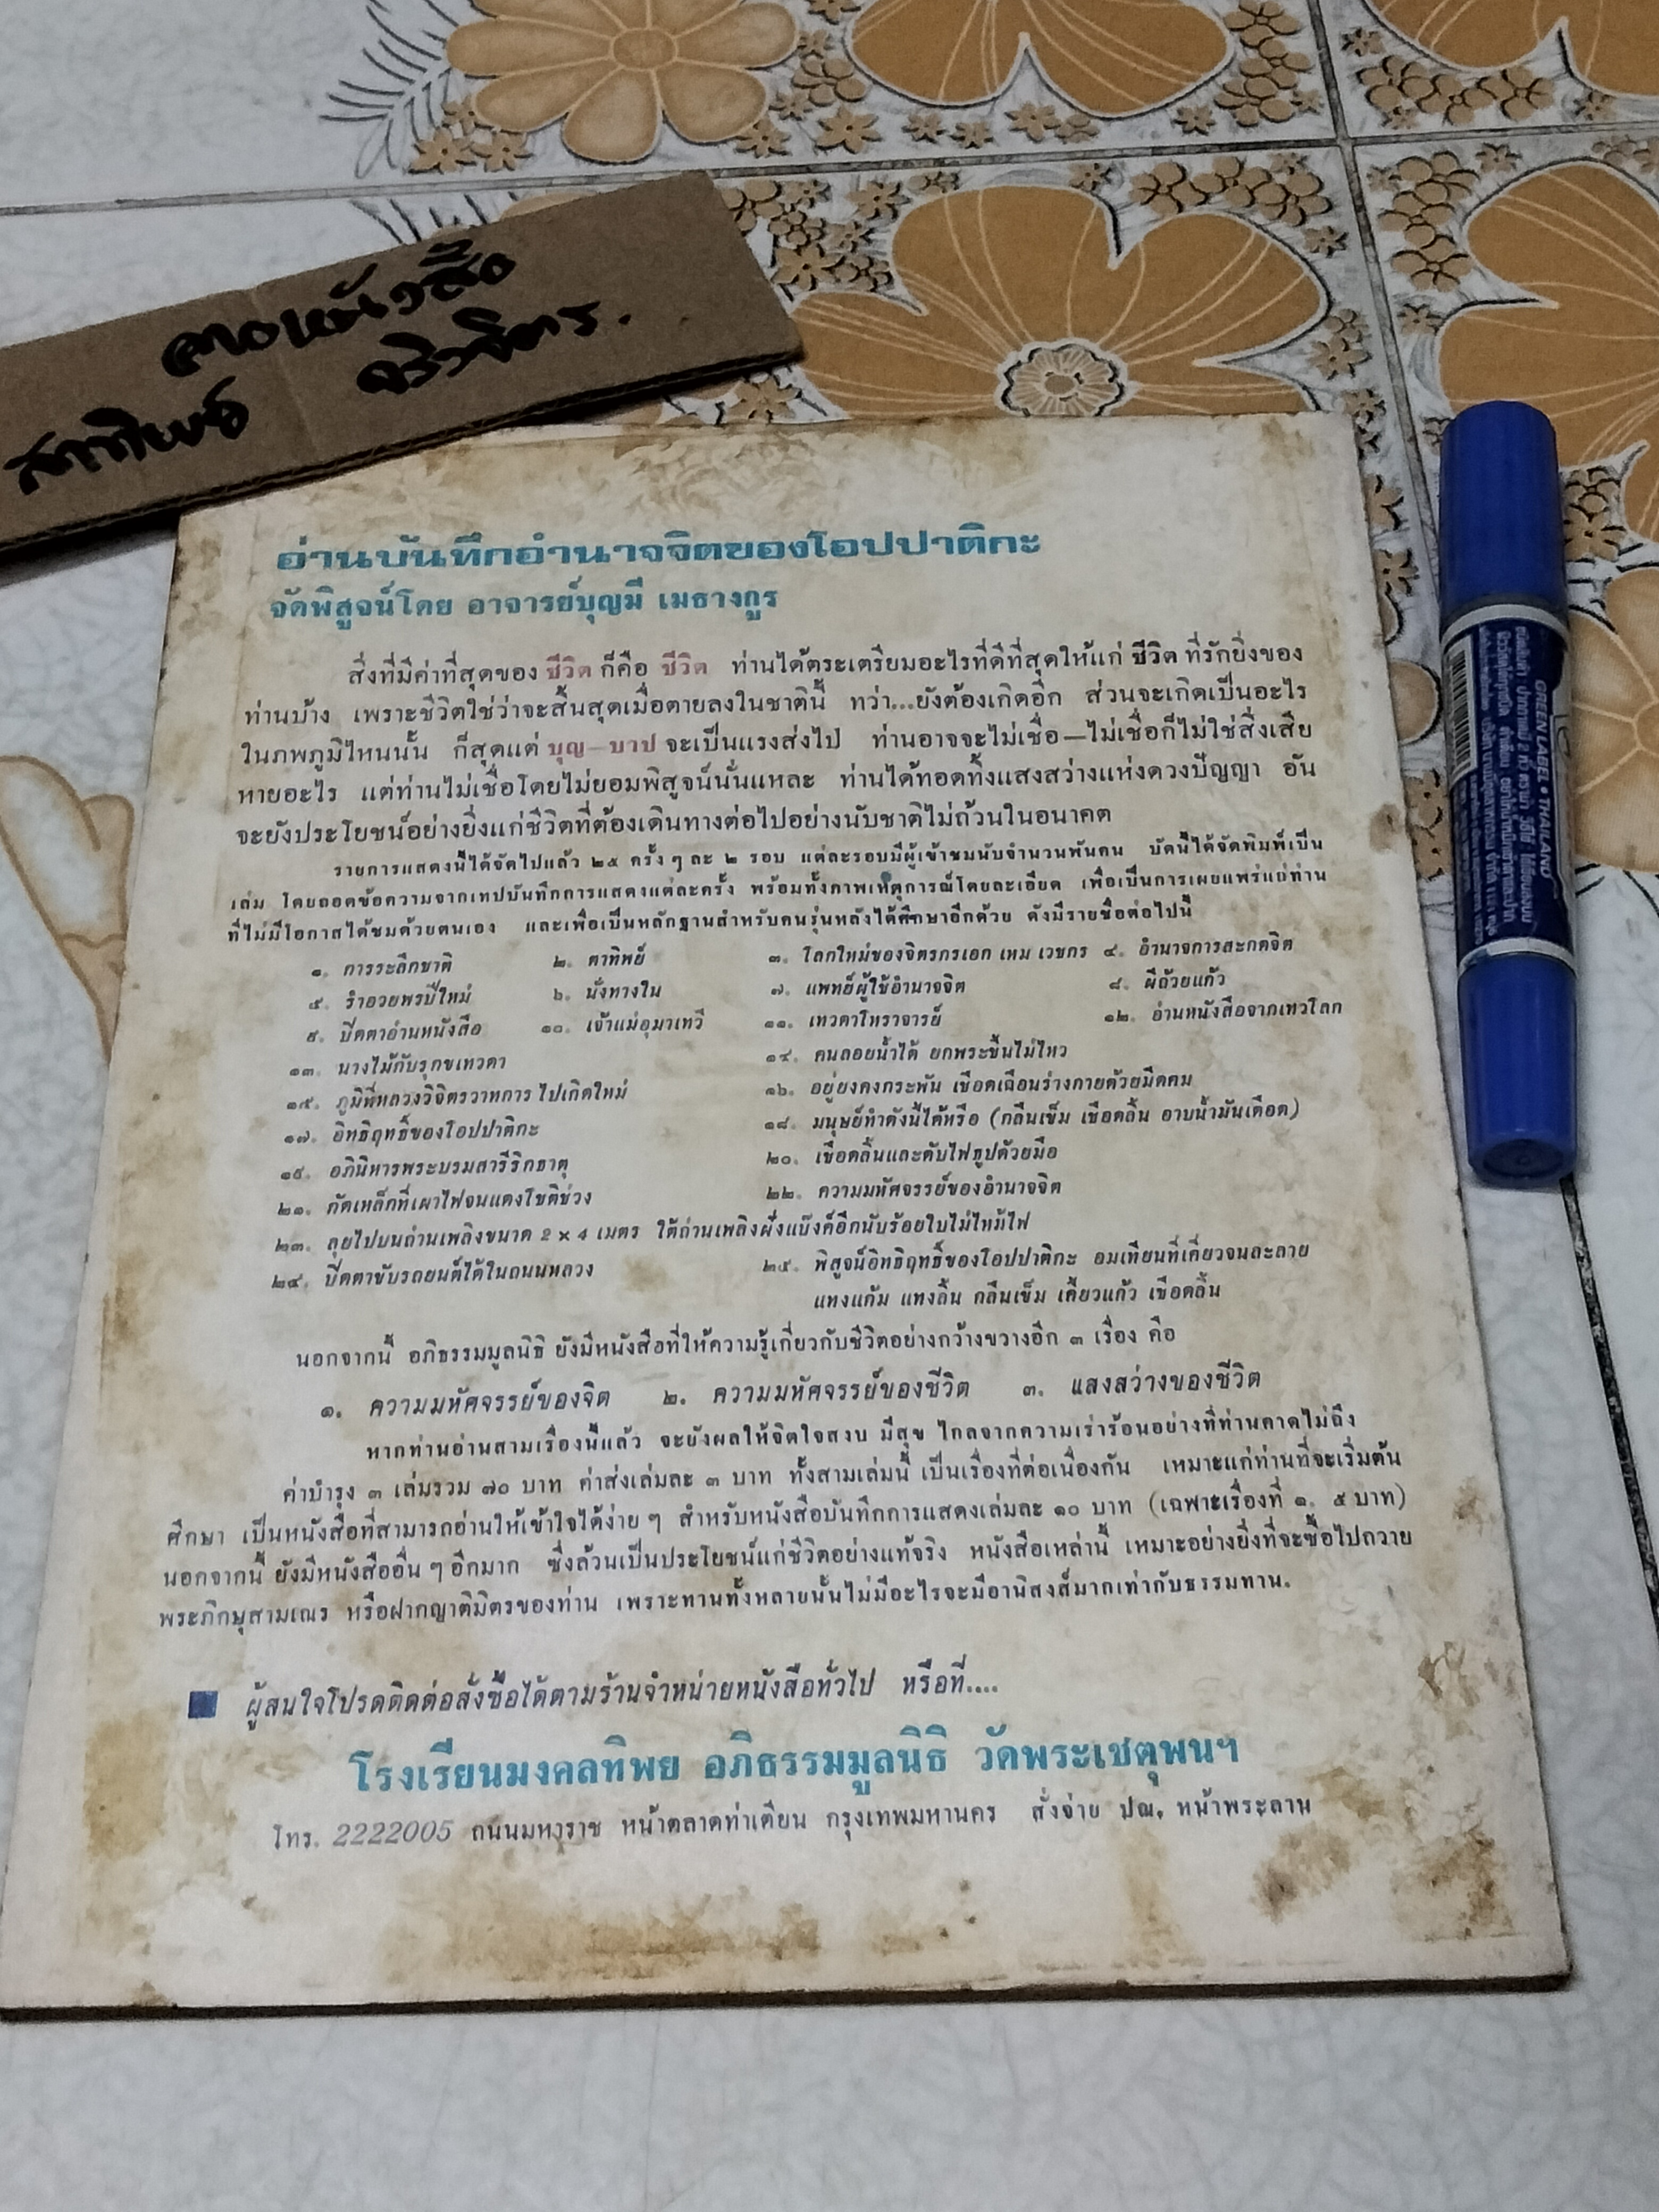 อ่านบันทึกอำนาจจิตของโอปปาติกะ
จัดพิสูจน์โดย อาจารย์บุญมี เมธางกูร
สิ่งที่มีค่าที่สุดของ ชีวิต ก็คือ ชีวิต ท่านได้ตระเตรียมอะไรที่ดีที่สุดให้แก่ ชีวิต ที่รักยิ่งของ
ท่านบ้าง เพราะชีวิตใช่ว่าจะสิ้นสุดเมื่อตายลงในชาตินี้ ทว่า...ยังต้องเกิดอีก ส่วนจะเกิดเป็นอะไร
ในภพภูมิไหนนั้น ก็สุดแต่ บุญ–บาป จะเป็นแรงส่งไป ท่านอาจจะไม่เชื่อ—ไม่เชื่อก็ไม่ใช่สิ่งเสีย
หายอะไร แต่ท่านไม่เชื่อโดยไม่ยอมพิสูจน์นั่นแหละ ท่านได้ทอดทิ้งแสงสว่างแห่งดวงปัญญา อัน
จะยังประโยชน์อย่างยิ่งแก่ชีวิตที่ต้องเดินทางต่อไปอย่างนับชาติไม่ถ้วนในอนาคต
รายการแสดงนี้ได้จัดไปแล้ว ๒๕ ครั้ง ๆ ละ ๒ รอบ แต่ละรอบมีผู้เข้าชมนับจำนวนพันคน บัดนี้ได้จัดพิมพ์เป็น
เล่ม โดยถอดข้อความจากเทปบันทึกการแสดงแต่ละครั้ง พร้อมทั้งภาพเหตุการณ์โดยละเอียด เพื่อเป็นการเผยแพร่แก่ท่าน
ที่ไม่มีโอกาสได้ชมด้วยตนเอง และเพื่อเป็นหลักฐานสำหรับคนรุ่นหลังได้ศึกษาอีกด้วย ดังมีรายชื่อต่อไปนี้
๑. การระลึกชาติ ๒. ตาทิพย์ ๓. โลกใหม่ของจิตรกรเอก เหม เวชกร ๔. อำนาจการสะกดจิต
๕. รำอวยพรปีใหม่ ๖. นั่งทางใน ๗. แพทย์ผู้ใช้อำนาจจิต ๘. ผีถ้วยแก้ว
๙. ปิดตาอ่านหนังสือ ๑๐. เจ้าแม่อุมาเทวี ๑๑. เทวดาโหราจารย์ ๑๒. อ่านหนังสือจากเทวโลก
๑๓. นางไม้กับรุกขเทวดา ๑๔. คนลอยน้ำได้ ยกพระขึ้นไม่ไหว
๑๕. ภูมิที่หลวงวิจิตรวาทการ ไปเกิดใหม่ ๑๖. อยู่ยงคงกระพัน เชือดเฉือนร่างกายด้วยมีดคม
๑๗. อิทธิฤทธิ์ของโอปปาติกะ ๑๘. มนุษย์ทำดังนี้ได้หรือ (กลืนเข็ม เชือดลิ้น อาบน้ำมันเดือด)
๑๙. อภินิหารพระบรมสารีริกธาตุ ๒๐. เชือดลิ้นและดับไฟธูปด้วยมือ
๒๑. กัดเหล็กที่เผาไฟจนแดงโชติช่วง ๒๒. ความมหัศจรรย์ของอำนาจจิต
๒๓. ลุยไปบนถ่านเพลิงขนาด 2 × 4 เมตร ใต้ถ่านเพลิงฝังแบ๊งค์อีกนับร้อยใบไม่ไหม้ไฟ
๒๔. ปิดตาขับรถยนต์ได้ในถนนหลวง ๒๕. พิสูจน์อิทธิฤทธิ์ของโอปปาติกะ อมเทียนที่เคี่ยวจนละลาย
แทงแก้ม แทงลิ้น กลืนเข็ม เคี้ยวแก้ว เชือดลิ้น
นอกจากนี้ อภิธรรมมูลนิธิ ยังมีหนังสือที่ให้ความรู้เกี่ยวกับชีวิตอย่างกว้างขวางอีก ๓ เรื่อง คือ
๑. ความมหัศจรรย์ของจิต ๒. ความมหัศจรรย์ของชีวิต ๓. แสงสว่างของชีวิต
หากท่านอ่านสามเรื่องนี้แล้ว จะยังผลให้จิตใจสงบ มีสุข ไกลจากความเร่าร้อนอย่างที่ท่านคาดไม่ถึง
ค่าบำรุง ๓ เล่มรวม ๗๐ บาท ค่าส่งเล่มละ ๓ บาท ทั้งสามเล่มนี้ เป็นเรื่องที่ต่อเนื่องกัน เหมาะแก่ท่านที่จะเริ่มต้น
ศึกษา เป็นหนังสือที่สามารถอ่านให้เข้าใจได้ง่าย ๆ สำหรับหนังสือบันทึกการแสดงเล่มละ ๑๐ บาท (เฉพาะเรื่องที่ ๑. ๕ บาท)
นอกจากนี้ ยังมีหนังสืออื่น ๆ อีกมาก ซึ่งล้วนเป็นประโยชน์แก่ชีวิตอย่างแท้จริง หนังสือเหล่านี้ เหมาะอย่างยิ่งที่จะซื้อไปถวาย
พระภิกษุสามเณร หรือฝากญาติมิตรของท่าน เพราะทานทั้งหลายนั้นไม่มีอะไรจะมีอานิสงส์มากเท่ากับธรรมทาน.
ผู้สนใจโปรดติดต่อสั่งซื้อได้ตามร้านจำหน่ายหนังสือทั่วไป หรือที่....
โรงเรียนมงคลทิพย อภิธรรมมูลนิธิ วัดพระเชตุพนฯ
โทร. 2222005 ถนนมหาราช หน้าตลาดท่าเตียน กรุงเทพมหานคร สั่งจ่าย ปณ. หน้าพระลาน
GREEN LABEL • THAILAND